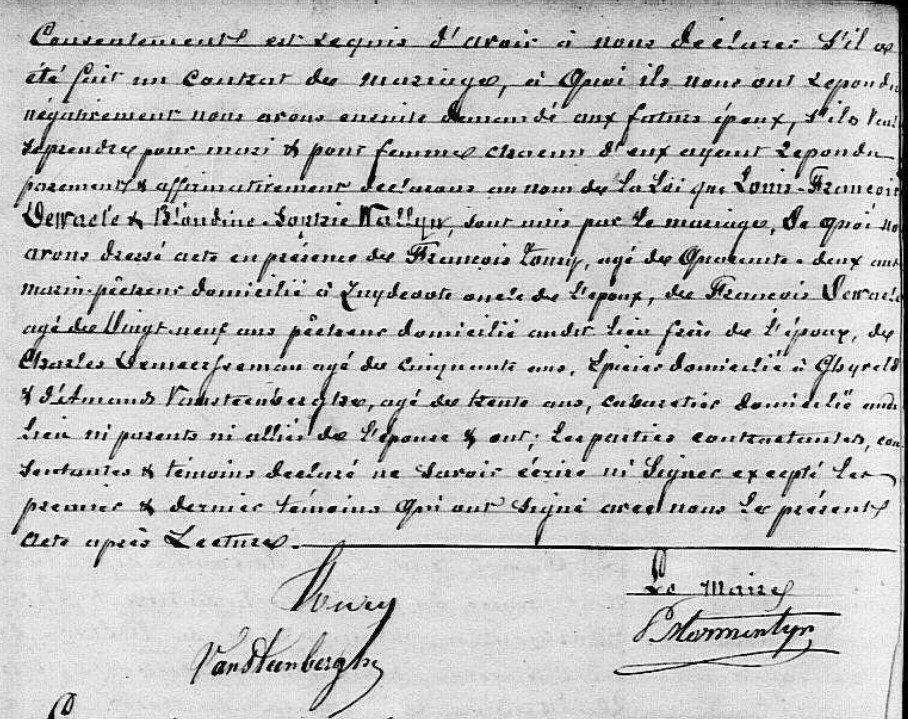 Consentement est requis d'avoir à nous déclarer s'il a
été fait un contrat de mariage, à quoi ils nous ont répondu
négativement nous avons ensuite demandé aux futurs époux, s'ils veul
se prendre pour mari & pour femme chacun d'eux ayant répondu
parément & affirmativement déclarons au nom de la Loi que Louis-François
Dewaele & Blondine-Sophie Wallyn, sont unis par le mariage, De quoi no
avons dressé acte en présence de François Loury, agé de Quarante-deux ans
marin-pêcheur domicilié à Zuydcoote oncle de l'époux, de François Dewaele
agé de Vingt-neuf ans pêcheur domicilié audit lieu frère de l'époux, de
Charles Demeersseman agé de cinquante ans, Epicier domicilié à Ghyveld
& d'Amand Vansteenberghe, agé de trente ans, cabaretier domicilié aud
lieu ni parents ni alliés de l'épouse & ont; les parties contractantes, con
sentantes & témoins déclaré ne savoir écrire ni signer excepté les
premier & dernier témoins qui ont signé avec nous le présent
acte après Lecture.
Le Maire
Vansteenberghe